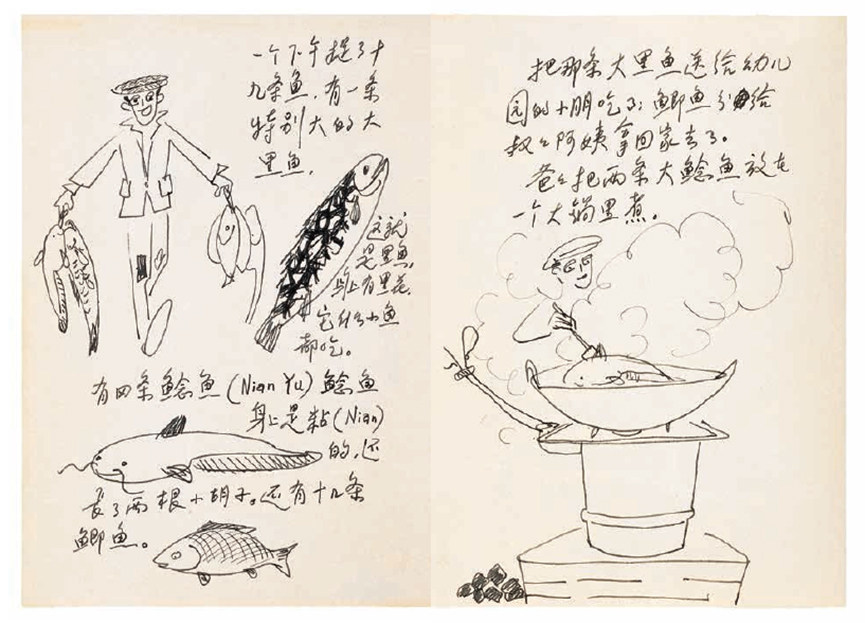 一个下午捉了十
九条鱼，有一条
特别大的大
黑鱼，
这就
是黑鱼，
身上有黑花，
它什么小鱼
都吃。
有四条鲶鱼(Nian Yu)鲶鱼
身上是粘(Nian)
的，还
长了两根小胡子。还有十几条
鲫鱼。
把那条大黑鱼送给幼儿
园的小朋吃了；鲫鱼分给
叔々阿姨拿回家去了。
爸々把两条大鲶鱼放在
一个大锅里煮。